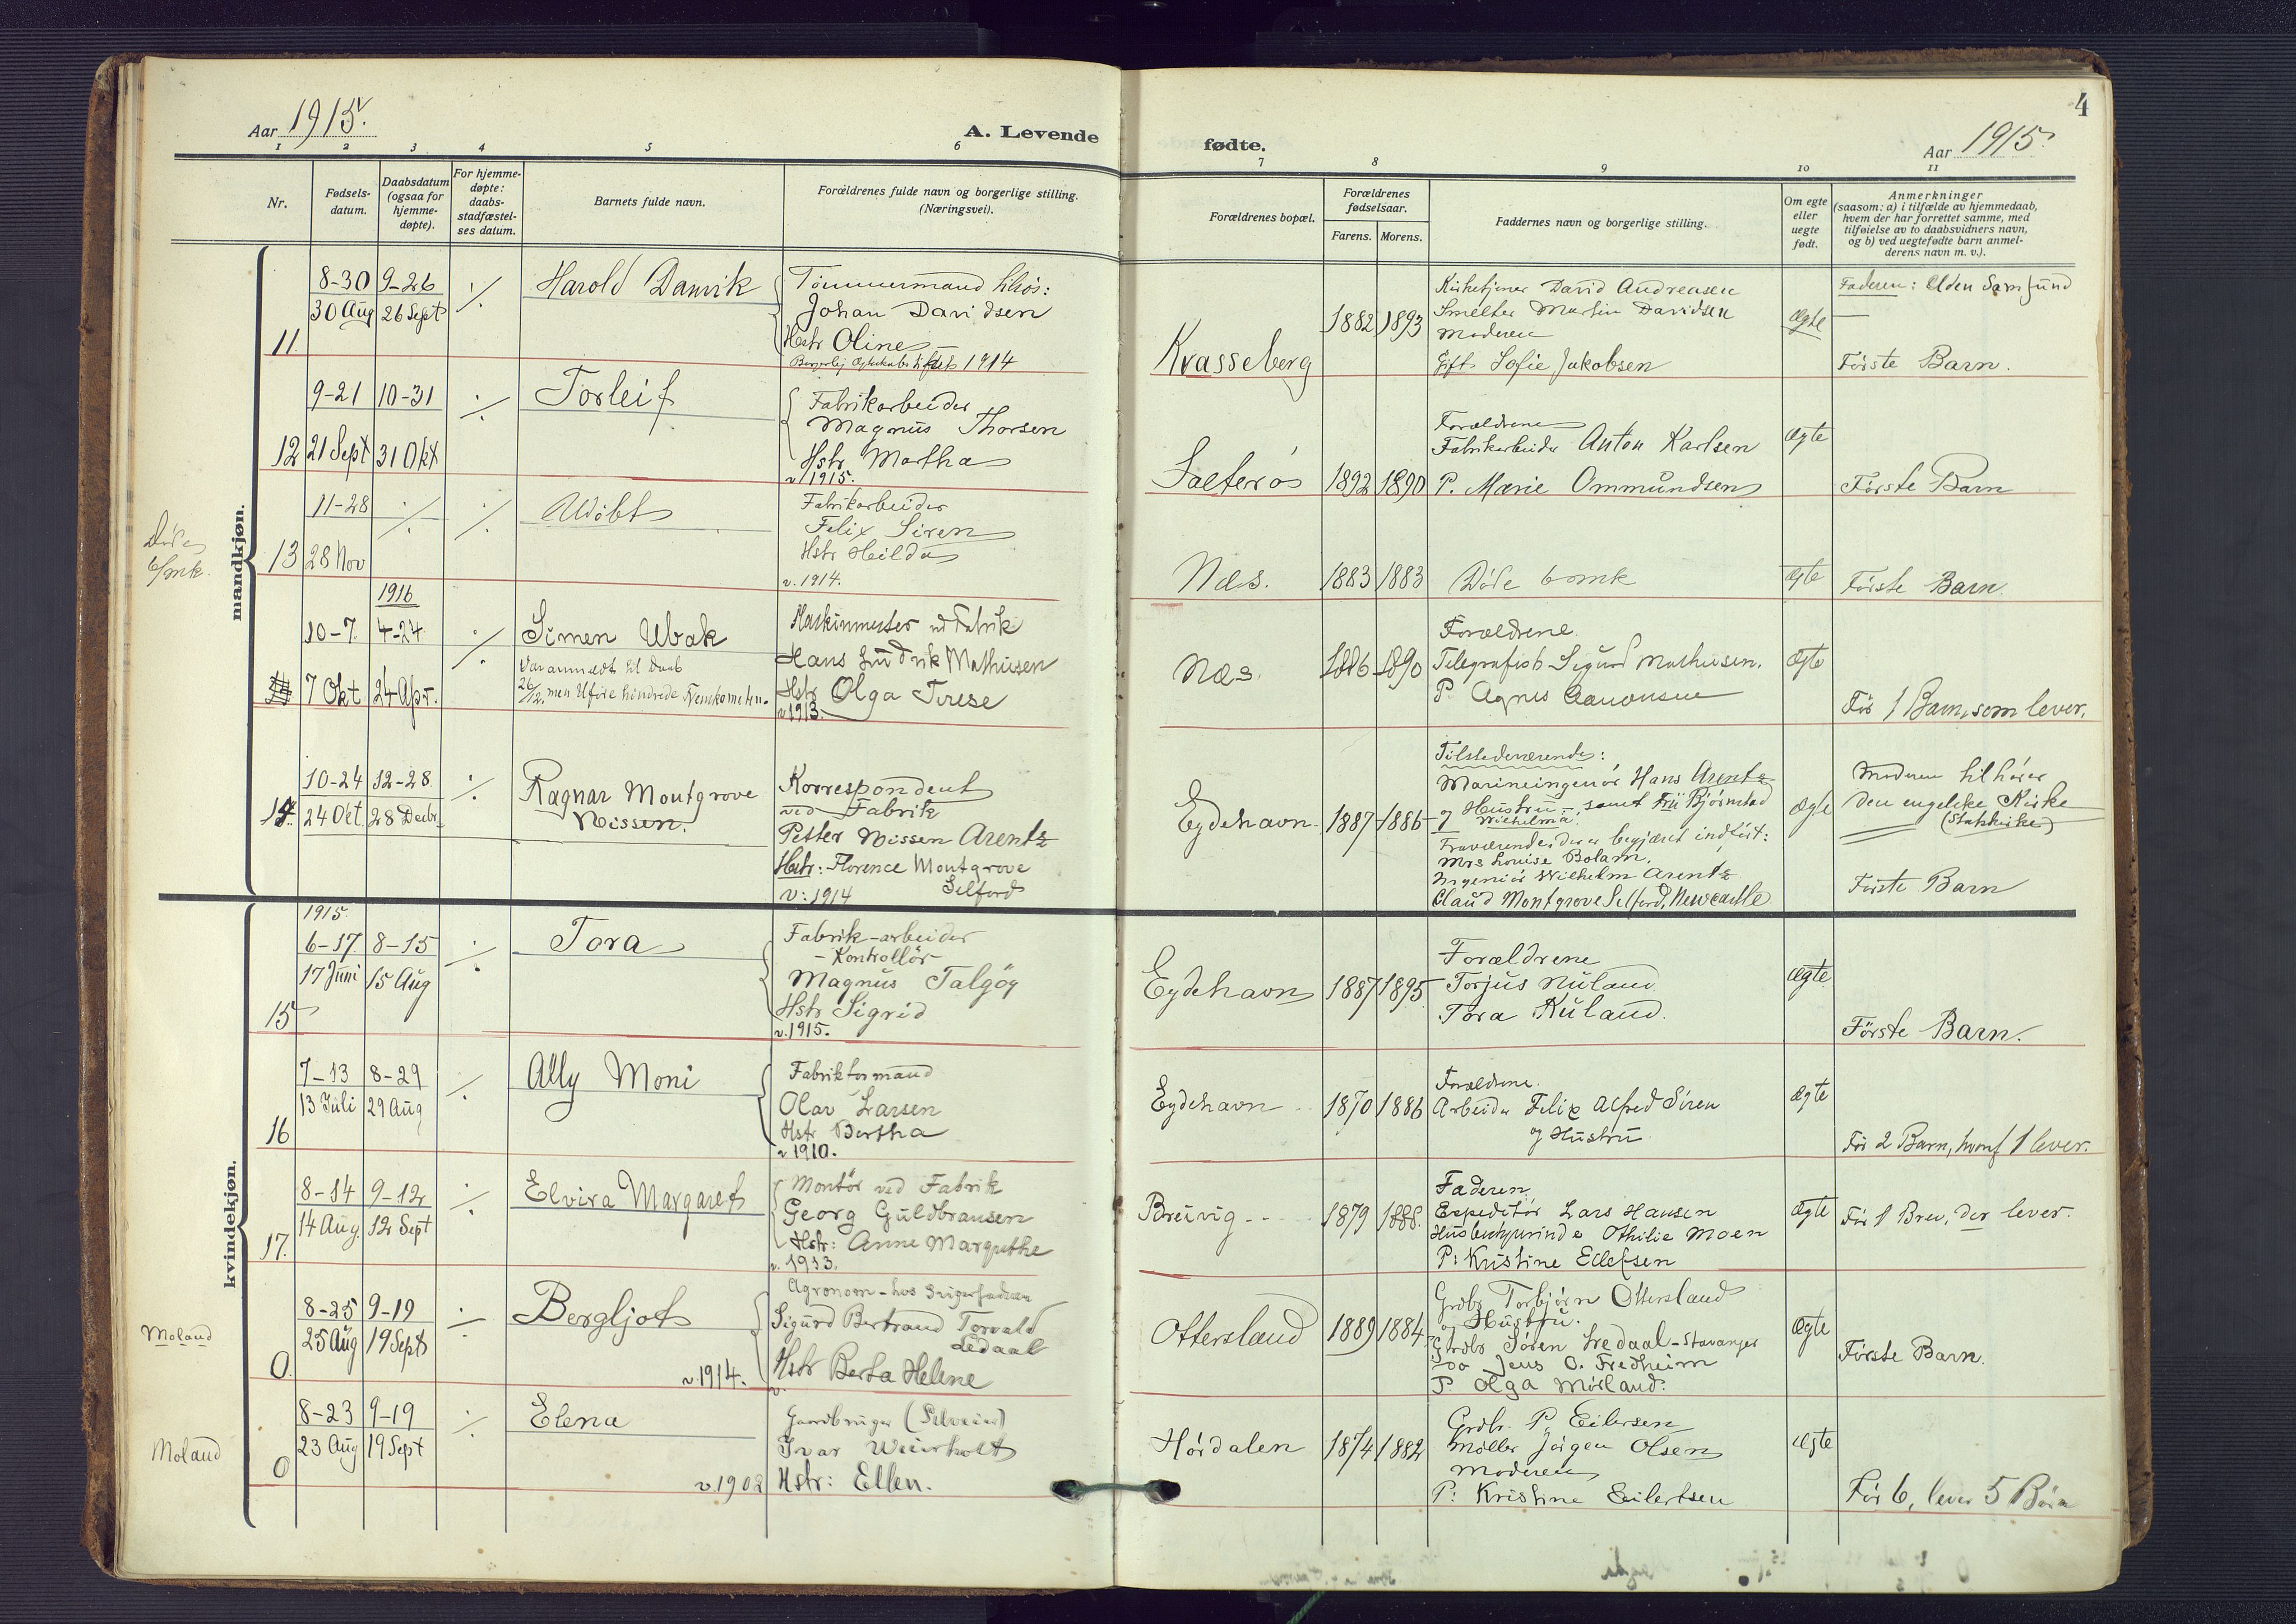 Aar 1915.
A. Levende
1 2 3 4 5 6
Nr.
Fødsels-
datum.
Daabsdatum
(ogsaa for
hjemme-
døpte).
For hjemme-
døpte:
daabs-
stadfæstel-
ses datum.
Barnets fulde navn.
Forældrenes fulde navn og borgerlige stilling.
(Næringsvei).
mandkjøn.
8-30 9-26 ./. Harold Danvik Tømmermand
30 Aug 26 Sept Johan Davidsen
11. Hstr Oline
1914
9-21 10-31 ./. Torleif Fabrikarbeider
Magnus Thorsen
12 21 Sept 31 Okt Hstr. Martha
v 1915.
11-28 ./. ./. Udøbt Fabrikarbeider
Felix Siren
Døde
6/mk.
13 28 Nov Hstr Hilda
v. 1914.
1916
10-7. 4-24 ./. Simen Ubak Maskinmester v. Fabrik
Var anmeldt til Daab Hans Ludvik Mathisen
7 Okt 24 Apr. 26/12, men Uføre hindrede Fremkomsten. Hstr Olga Terese
v 1913.
10-24 12-28 ./. Ragnar Montgrove Korrespondent
14. 24 Okt. 28 Decbr. Nissen. ved Fabrik
Petter Nissen Arentz
Hstr: Florence Montgrove
v: 1914 Selford
kvindekjøn.
1915.
6-17 8-15 ./. Tora Fabrik-arbeider
-Kontrollør-
17 Juni 15 Aug Magnus Talgöy
15 Hstr Sigrid
v. 1915.
7-13 8-29 ./. Ally Moni Fabrikformand
13 Juli 29 Aug Olav Larsen
16 Hstr Bertha
v 1910.
8-14 9-12 ./. Elvira Margaret Montør ved Fabrik
14 Aug. 12 Sept Georg Guldbransen
17. Hstr: Anne Margrethe
v. 1913.
Agronom - hos Svigerfaderen
8-25 9-19 ./. Bergljot Sigurd Bertrand Torvald
Moland 25 Aug 19 Sept Ledaal
0. v. 1914. Hstr Berta Helene
8-23 9-19 ./. Elena Gaardbruger (Selveier)
Moland 23 Aug 19 Sept Ivar Weierholt
0 v. 1902 Hstr: Ellen.
4
fødte.
Aar 1915.
7 8 9 10 11
Forældrenes bopæl.
Forældrenes
fødselsaar.
Farens. Morens.
Faddernes navn og borgerlige stilling.
Om egte
eller
uegte
født.
Anmerkninger
(saasom: a) i tilfælde av hjemmedaab,
hvem der har forrettet samme, med
tilføielse av to daabsvidners navn,
og b) ved uegtefødte barn anmel-
derens navn m. v.).
Kirketjener David Andreasen Faderen: Uden Samfund
1882 1893 Smelter Martin Davidsen Ægte
Moderen
Kvasseberg Gift Sofie Jakobsen Første Barn.
Forældrene
Fabrikarbeider Anton Karlsen Ægte
Sæterøs 1892 1890 P. Marie Ommundsen Første Barn
Næs. 1883 1883 Døde 6 mk Ægte Første Barn
Forældrene
Næs. 1886 1890 Telegrafist Sigurd Mathisen. Ægte
P. Agnes Aanonsen
Før 1 Barn, som lever.
Tilstedeværende:
Marineingeniør Hans Arentz Moderen tilhører
Eydehavn. 1887 1886 og Hustru - samt Frü Bjørnstad Ægte den engelske Kirke
Wilhelma. (Statskirke)
Fraværende, der er begjæret indført:
Mrs Louise Bolam.
Ingeniør Wilhelm Arentz Første Barn
Claud Montgrove Selford, Newcastle
Forældrene
Eydehavn 1887 1895 Torjus Nuland Ægte.
Tora Kuland.
Første Barn.
Forældrene.
Eydehavn 1870 1886 Arbeider Felix Alfred Siren Ægte
og Hustru
Før 2 Barn, hvoraf 1 lever.
Faderen
Breivig 1879 1888. Expeditør Lars Hansen Ægte Før 1 Brn, der lever.
Husbestyrerinde Othilie Moen
P: Kristine Ellefsen
Grdbr Torbjørn Ottersland
og Hustru.
Ottersland 1889 1884 Grdbr Søren Ledaal - Stavanger Ægte
Do Jens O. Fredheim Første Barn.
P. Olga Mørland.
Grdbr. P. Eilersen
Hördalen 1874 1882 Møller Jørgen Olsen Ægte
Moderen
P: Kristine Eilertsen Før 6, lever 5 Børn